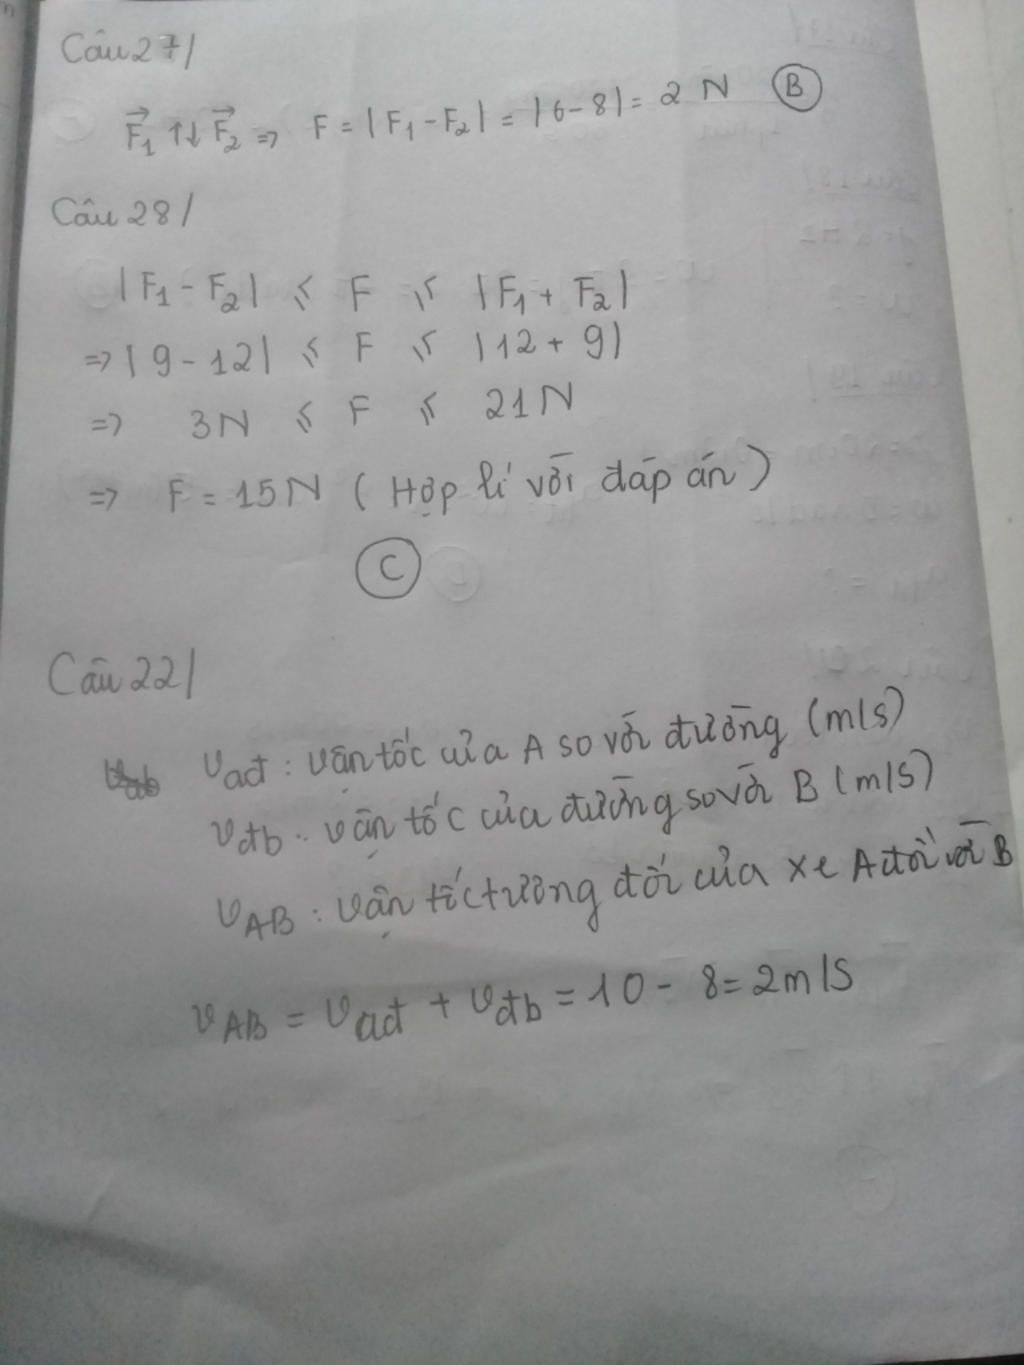 Câu 27/
F₁ ↑↓ F₂ => F = |F₁ - F₂| = |6 - 8| = 2 N (B)
Câu 28/
|F₁ - F₂| ≤ F ≤ |F₁ + F₂|
=> |9 - 12| ≤ F ≤ |12 + 9|
=> 3N ≤ F ≤ 21N
=> F = 15N (Hợp lí với đáp án)
C
Câu 22/
vad : vận tốc của A so với đường (m/s)
vđb : vận tốc của đường so với B (m/s)
vAB : vận tốc tương đối của xe A đối với B
vAB = vađ + vđb = 10 - 8 = 2m/s